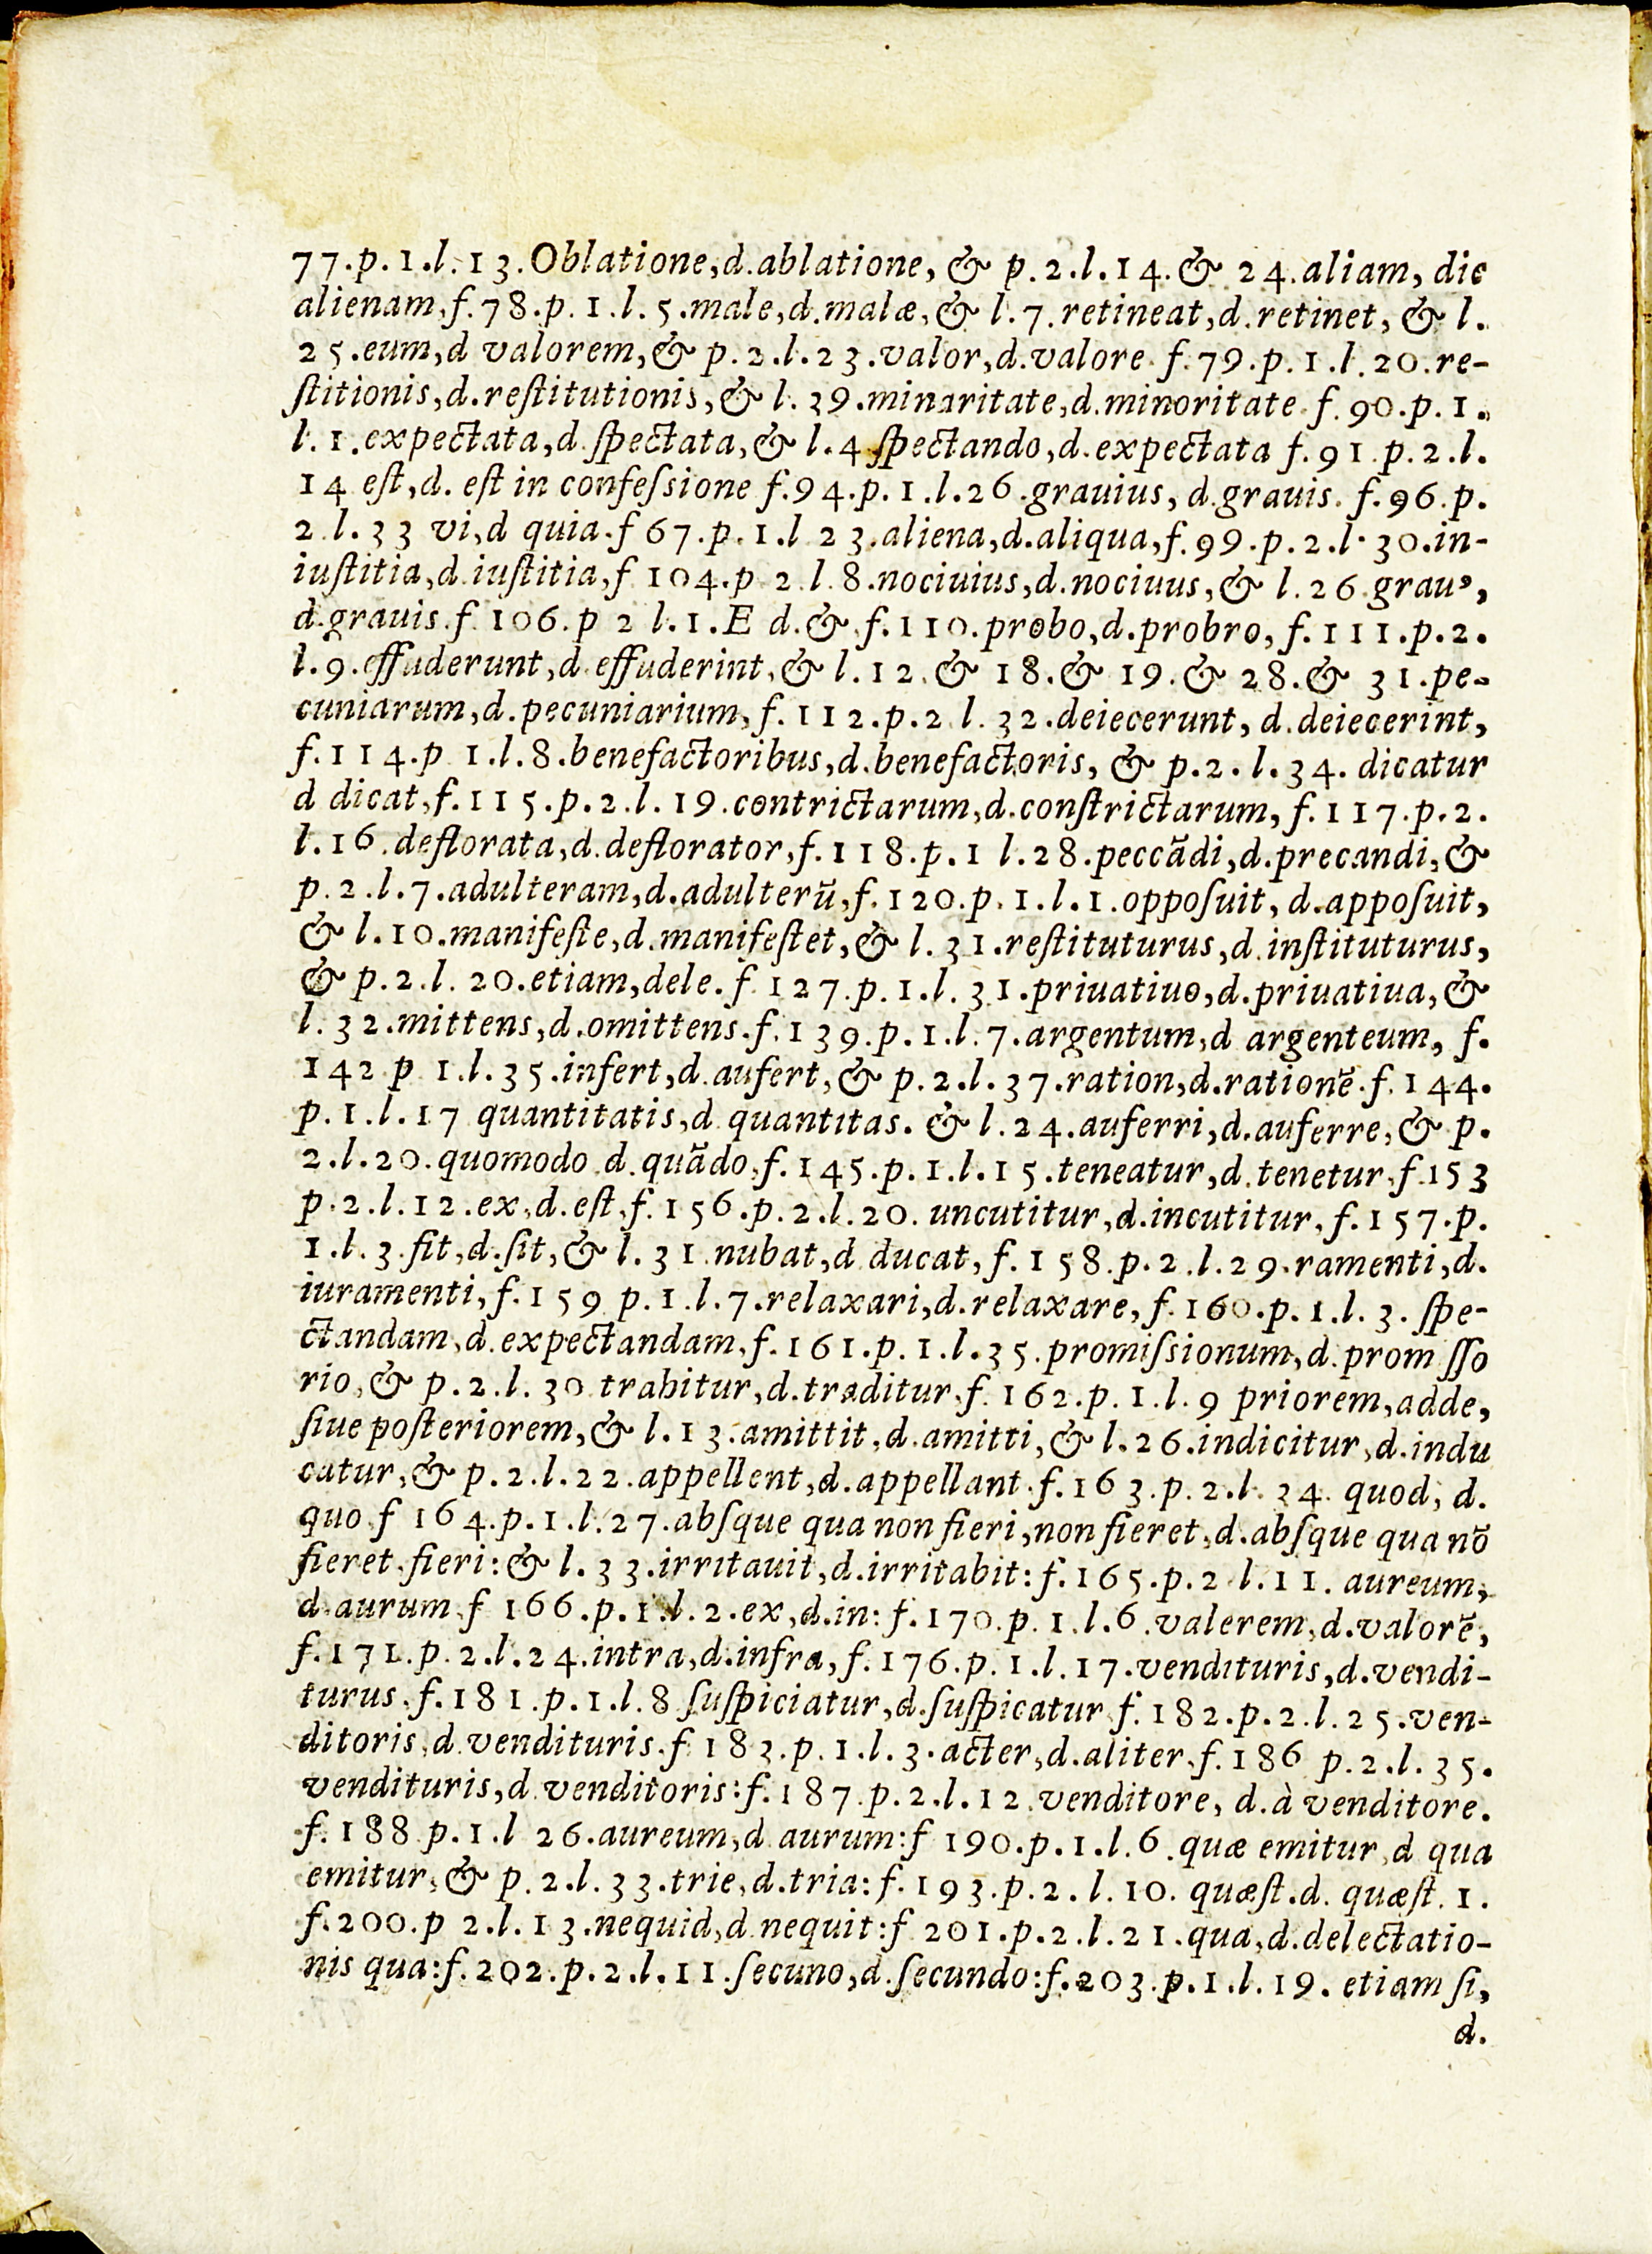 77.p.1.l.13.Oblatione,d.ablatione, & p.2.l.14.& 24.aliam, dic
alienam,f.78.p.1.l.5.male,d.malæ,& l.7.retineat,d.retinet, & l.
25.eum,d valorem,& p.2.l.23.valor,d.valore.f.79.p.1.l.20.re-
ſtitionis,d.reſtitutionis,& l.29.minaritate,d.minoritate.f.90.p.1.
l.1.expectata,d.ſpectata,& l.4 ſpectando,d.expectata f.91.p.2.l.
14 eſt,d. eſt in confeſsione f.94.p.1.l.26.grauius, d.grauis. f.96.p.
2.l.33 vi,d quia.f 67.p.1.l 23.aliena,d.aliqua,f.99.p.2.l.30.in-
iuſtitia,d.iuſtitia,f 104.p 2.l.8.nociuius,d.nociuus,& l.26.grauꝰ,
d.grauis.f.106.p 2 l.1.E d.&.f.110.probo,d.probro, f.111.p.2.
l.9.effuderunt,d.effuderint,& l.12.& 18.& 19.& 28.& 31.pe-
cuniarum,d.pecuniarium, f.112.p.2 l.32.deiecerunt, d.deiecerint,
f.114.p 1.l.8.benefactoribus,d.benefactoris, & p.2.l.34. dicatur
d dicat,f.115.p.2.l.19.contrictarum,d.conſtrictarum, f.117.p.2.
l.16.deflorata,d.deflorator,f.118.p.1 l.28.peccãdi,d.precandi,&
p.2.l.7.adulteram,d.adulterũ,f.120.p.1.l.1.oppoſuit, d.appoſuit,
& l.10.manifeſte,d.manifeſtet,& l.31.reſtituturus,d.inſtituturus,
& p.2.l.20.etiam,dele.f.127.p.1.l.31.priuatiuo,d.priuatiua,&
l.32.mittens,d.omittens.f.139.p.1.l.7.argentum,d argenteum, f.
142 p 1.l.35.infert,d.aufert,& p.2.l.37.ration,d.rationẽ.f.144.
p.1.l.17 quantitatis,d quantitas. & l.24.auferri,d.auferre,& p.
2.l.20.quomodo d.quãdo.f.145.p.1.l.15.teneatur,d.tenetur.f.153
p.2.l.12.ex,d.eſt,f.156.p.2.l.20. uncutitur,d.incutitur, f.157.p.
1.l.3.fit,d.ſit,& l.31.nubat,d ducat, f.158.p.2.l.29.ramenti,d.
iuramenti,f.159 p.1.l.7.relaxari,d.relaxare, f.160.p.1.l.3. ſpe-
ctandam,d.expectandam,f.161.p.1.l.35.promiſsionum,d.prom ſſo
rio,& p.2.l.30 trahitur,d.traditur.f.162.p.1.l.9 priorem,adde,
ſiue poſteriorem,& l.13.amittit,d.amitti,& l.26.indicitur,d.indu
catur,& p.2.l.22.appellent,d.appellant.f.163.p.2.l.24. quod, d.
quo.f 164.p.1.l.27.abſque qua non fieri,non fieret,d.abſque qua nõ
fieret.fieri:& l.33.irritauit,d.irritabit:f.165.p.2 l.11. aureum,
d.aurum.f 166.p.1.l.2.ex,d.in: f.170.p.1.l.6.valerem,d.valorẽ,
f.171.p.2.l.24.intra,d.infra, f.176.p.1.l.17.vendituris,d.vendi-
turus.f.181.p.1.l.8 ſuſpiciatur,d.ſuſpicatur f.182.p.2.l.25.ven-
ditoris,d.vendituris.f 183.p.1.l.3.acter,d.aliter.f.186 p.2.l.35.
vendituris,d.venditoris:f.187.p.2.l.12.venditore, d.à venditore.
f.188 p.1.l 26.aureum,d aurum:f 190.p.1.l.6.quæ emitur,d qua
emitur,& p.2.l.33.trie,d.tria: f.193.p.2.l.10. quæſt.d. quæſt.1.
f.200.p 2.l.13.nequid,d nequit:f 201.p.2.l.21.qua,d.delectatio-
nis qua:f.202.p.2.l.11.ſecuno,d.ſecundo:f.203.p.1.l.19. etiam ſi,
d.